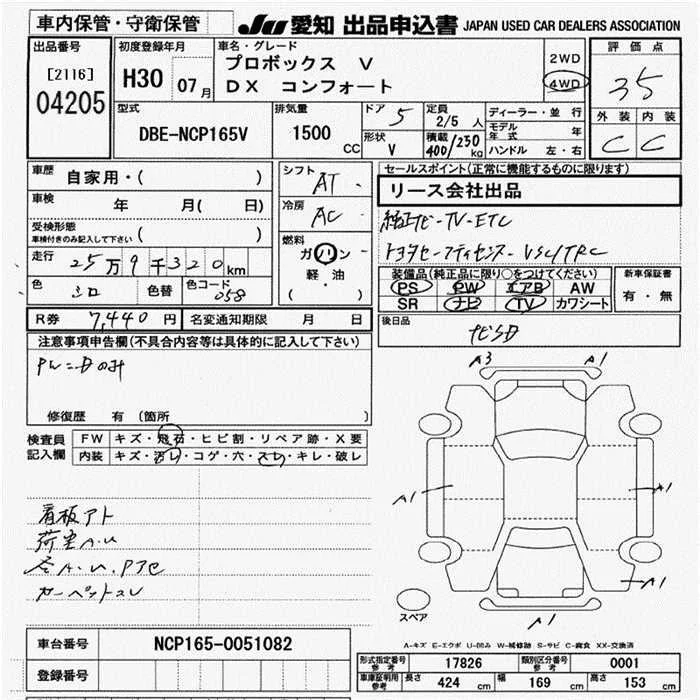 車内保管・守衛保管
JU 愛知 出品申込書 JAPAN USED CAR DEALERS ASSOCIATION
出品番号
[2116]
04205
初度登録年月
H30 07月
車名・グレード
プロボックス V
DX コンフォート
2WD
4WD
評価点
35
外装 内装
C C
型式
DBE-NCP165V
排気量
1500 CC
ドア 5
形状 V
定員 2/5 人
積載 400/250 kg
ディーラー・並行
モデル年式 年
ハンドル 左・右
車歴 自家用・( )
車検 年 月( 日)
受検形態
車検付きのみ記入して下さい ( )
走行 25万9千320km
色 シロ 色替 色コード 058
シフト AT
冷房 AC
燃料
ガソリン・
軽・油
( ・ )
セールスポイント(正常に機能するものに限ります)
リース会社出品
純正ナビ-TV-ETC
トヨタセーフティセンス-VSC/TRC
装備品(純正品に限り○をつけてください)
PS PW エアB AW
SR ナビ TV カワシート
新車保証書
有・無
R券 7,440 円 名変通知期限 月 日
後日品
ナビSD
注意事項申告欄(不具合内容等は具体的に記入して下さい)
PW=Dのみ
修復歴 有 (箇所
検査員記入欄
FW キズ・飛石・ヒビ割・リペア跡・X要
内装 キズ・汚レ・コゲ・穴・スレ・キレ・破レ
看板アト
荷室A.U
カーペットスレ
A3 A1
A1 A1
A1
A1
スペア
A-キズ E-エクボ U-凹み W-補修跡 S-サビ C-腐食 XX-交換済
車台番号 NCP165-0051082
登録番号
形式指定番号 参考 17826 類別区分番号 参考 0001
車庫証明用 参考 長さ 424 cm 幅 169 cm 高さ 153 cm